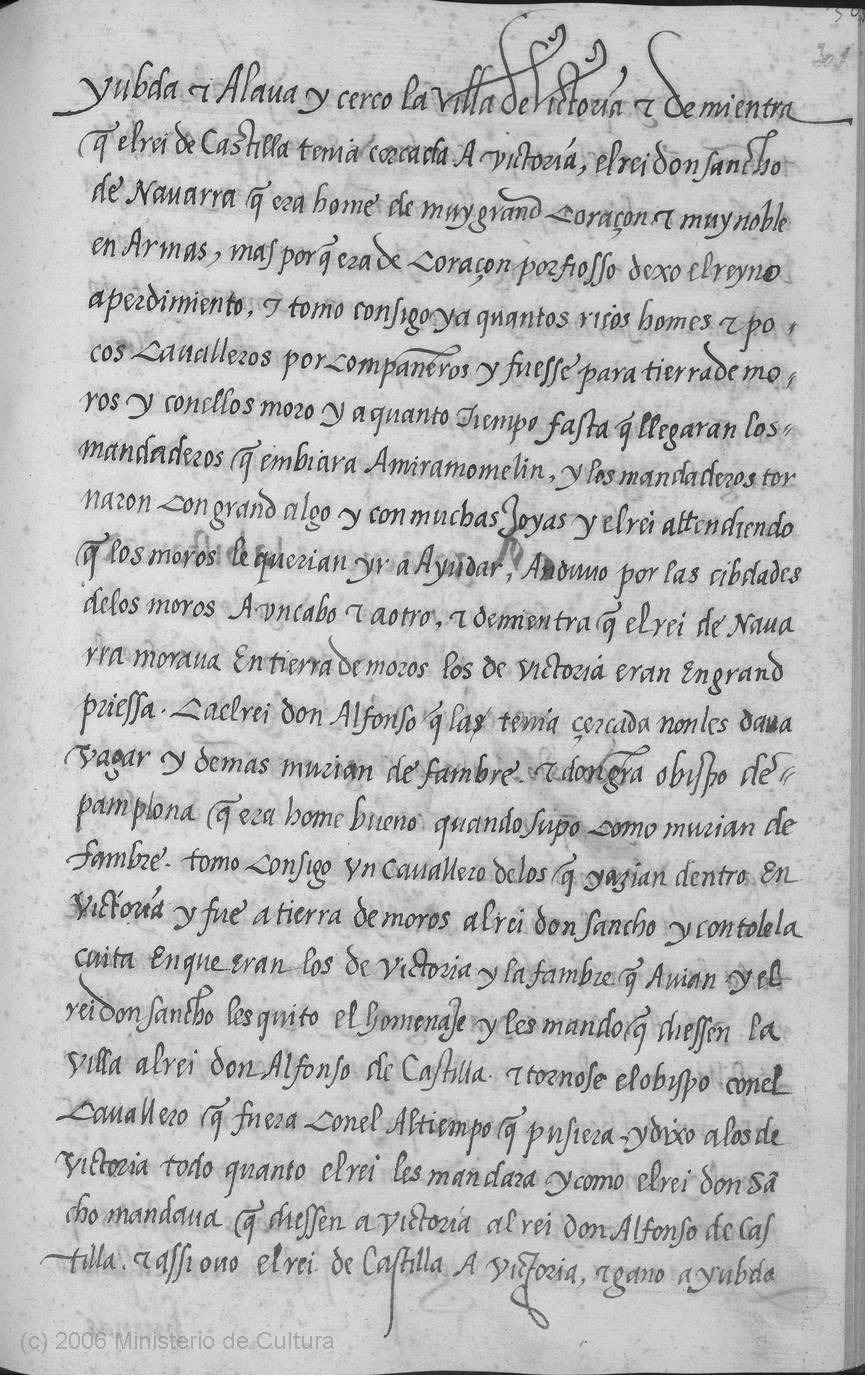 301
yubda τ Alaua y cerco la villa de victoria τ de mientra
q̃ el rei de Castilla tenia cercada A victoria, el rei don sancho
de Nauarra q̃ era home de muy grand coraçon τ muy noble
en Armas, mas porq̃ era de coraçon porfiosso dexo el reyno
a perdimiento, τ tomo consigo ya quantos ricos homes τ po
cos caualleros por compañeros y fuesse para tierra de mo
ros y con ellos moro y a quanto tiempo fasta q̃ llegaran los
mandaderos q̃ embiara Amiramomelin, y los mandaderos tor
naron con grand algo y con muchas Joyas y el rei attendiendo
q̃ los moros le querian yr a Ayudar, Anduuo por las cibdades
delos moros A vn cabo τ a otro, τ demientra q̃ el rei de Naua
rra moraua En tierra de moros los de victoria eran En grand
priessa. Ca el rei don Alfonso q̃ las tenia çercada non les daua
vagar y demas murian de fambre. τ don gr̃a obispo de
pamplona q̃ era home bueno quando supo como murian de
fambre. tomo consigo vn cauallero delos q̃ yazian dentro En
victoria y fue a tierra de moros al rei don sancho y contole la
cuita En que eran los de victoria y la fambre q̃ Auian y el
rei don sancho les quito el homenaje y les mando q̃ diessen la
villa al rei don Alfonso de Castilla. τ tornose el obispo conel
Cauallero q̃ fuera conel Al tiempo q̃ pusiera, y dixo a los de
victoria todo quanto el rei les mandara y como el rei don Sã
cho mandaua q̃ diessen a victoria al rei don Alfonso de Cas
tilla. τ assi ouo el rei de Castilla A victoria, τ gano a yubda
(c) 2006 Ministerio de Cultura